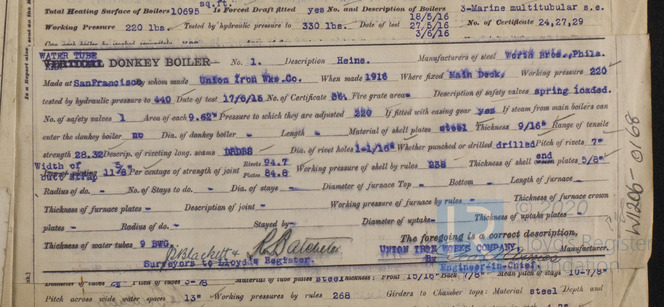 Total Heating Surface of Boilers 10695 sq.ft. Is Forced Draft fitted yes No. and Description of Boilers 3-Marine multitubular s.e.
Working Pressure 220 lbs. Tested by hydraulic pressure to 330 lbs. Date of test 18/5/16 27/5/16 3/6/16 No. of Certificate 24,27,29
WATER TUBE
DONKEY BOILER— No. 1. Description Heine. Manufacturers of steel Worth Bros., Phila.
Made at SanFrancisco whom made Union Iron Wks.Co. When made 1916 Where fixed Main Deck. Working pressure 220
tested by hydraulic pressure to 440 Date of test No. of Certificate Fire grate area — Description of safety valves spring loaded.
No. of safety valves 1 Area of each 9.62" Pressure to which they are adjusted 220 If fitted with easing gear yes If steam from main boilers can
enter the donkey boiler no Dia. of donkey boiler - Length - Material of shell plates steel Thickness 9/16" Range of tensile
strength 28.32 Descrip. of riveting long. seams DRDBS Dia. of rivet holes 1-1/16" Whether punched or drilled drilled Pitch of rivets 7"
Width of butt strap Per centage of strength of joint Rivets 94.7 Plates 84.8 Working pressure of shell by rules 238 Thickness of shell end plates 5/8"
Radius of do. - No. of Stays to do. - Dia. of stays - Diameter of furnace Top - Bottom - Length of furnace -
Thickness of furnace plates - Description of joint - Working pressure of furnace by rules - Thickness of furnace crown
plates - Radius of do. - Stayed by - Diameter of uptake - Thickness of uptake plates -
Thickness of water tubes 9 BWG. The foregoing is a correct description,
R. Blackett & R. Batchelor UNION IRON WORKS COMPANY Manufacturer.
Surveyors to Lloyd's Register. By Engineer-in-Chief
Pitch across wide water spaces 13" Working pressures by rules 268 Girders to Chamber tops: Material steel Depth and
W1206-0168
© 2020